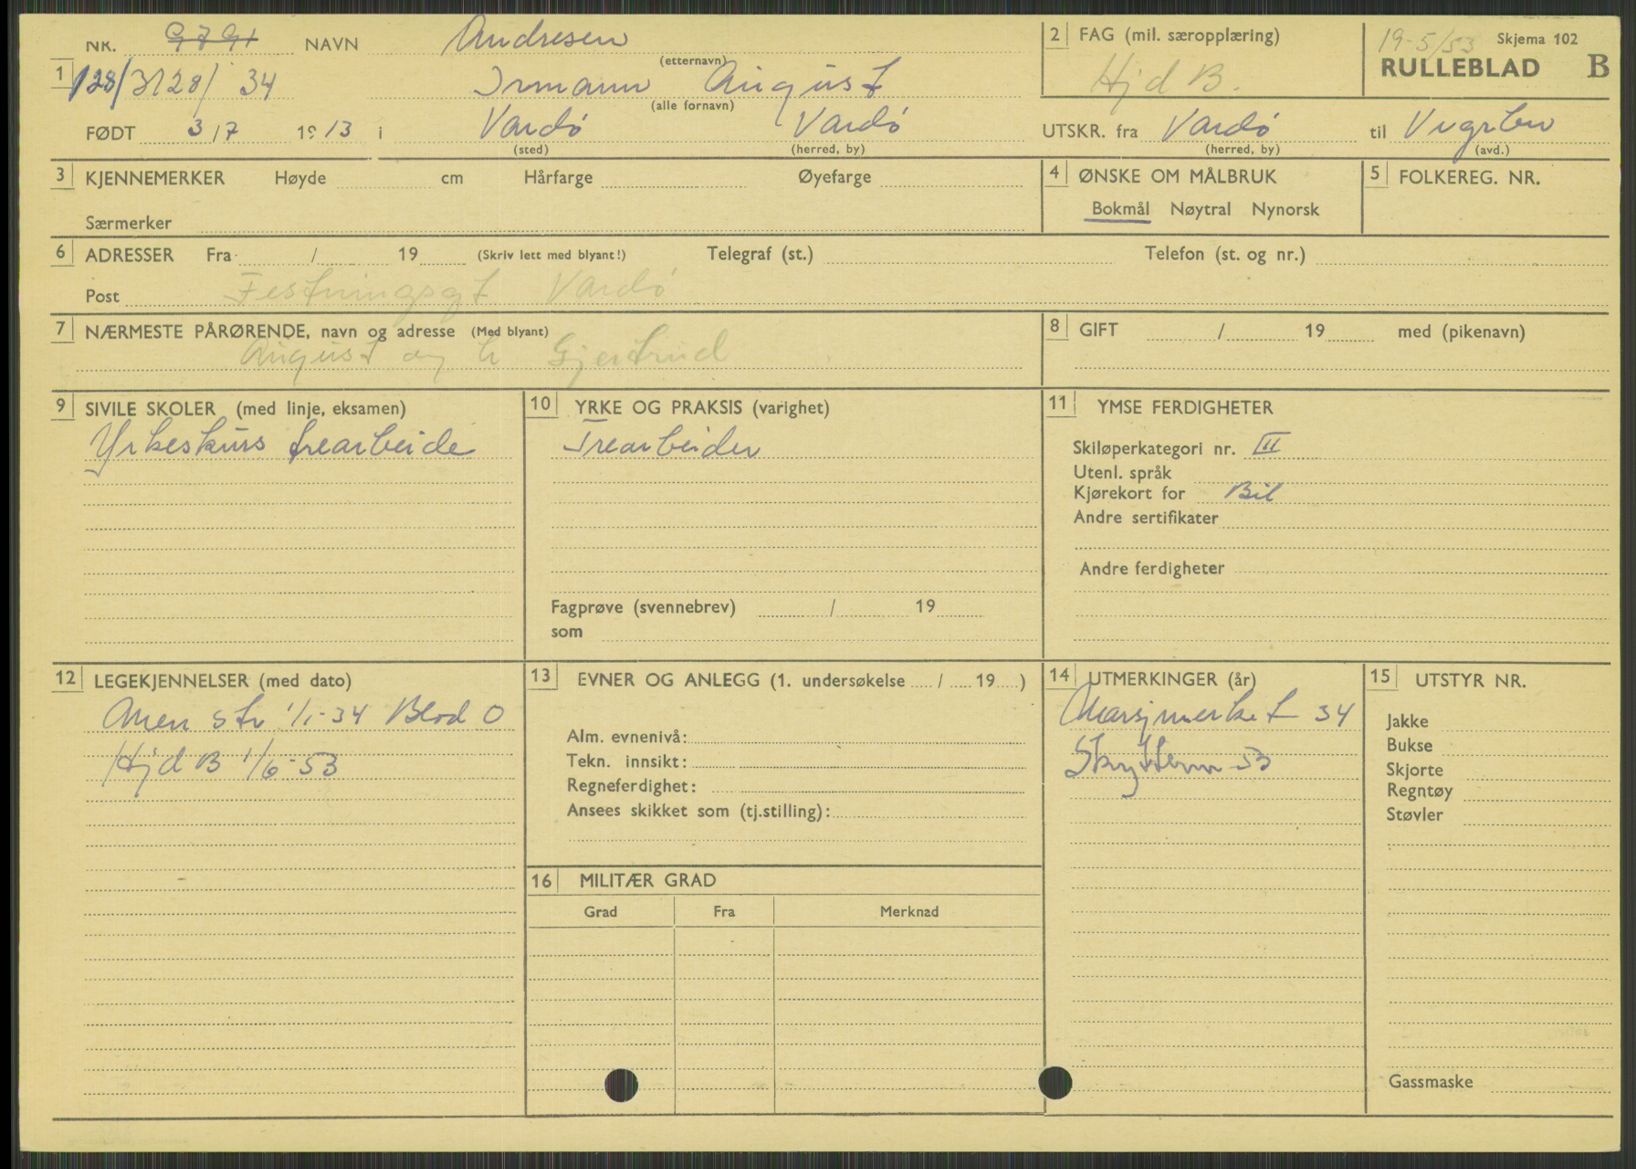 NK. 9791 NAVN Andresen
(etternavn)
1 128/3128/ 34 Irmann August
(alle fornavn)
FØDT 3/7 1913 i Vardø Vardø
(sted) (herred, by)
2 FAG (mil. særopplæring)
Hjd B.
19-5/53 Skjema 102
RULLEBLAD B
UTSKR. fra Vardø til
(herred, by) (avd.)
3 KJENNEMERKER Høyde cm Hårfarge Øyefarge
Særmerker
4 ØNSKE OM MÅLBRUK
Bokmål Nøytral Nynorsk
5 FOLKEREG. NR.
6 ADRESSER Fra / 19 (Skriv lett med blyant!) Telegraf (st.) Telefon (st. og nr.)
Post Festningsgt Vardø
7 NÆRMESTE PÅRØRENDE, navn og adresse (Med blyant)
August og h Gjertrud
8 GIFT / 19 med (pikenavn)
9 SIVILE SKOLER (med linje, eksamen)
Yrkeskurs trearbeide
10 YRKE OG PRAKSIS (varighet)
Trearbeider
Fagprøve (svennebrev) / 19
som
11 YMSE FERDIGHETER
Skiløperkategori nr. III
Utenl. språk
Kjørekort for Bil
Andre sertifikater
Andre ferdigheter
12 LEGEKJENNELSER (med dato)
str 1/1-34 Blod O
Hjd B 1/6-53
13 EVNER OG ANLEGG (1. undersøkelse / 19 )
Alm. evnenivå:
Tekn. innsikt:
Regneferdighet:
Ansees skikket som (tj.stilling):
14 UTMERKINGER (år)
Marsjmerket 34
53
15 UTSTYR NR.
Jakke
Bukse
Skjorte
Regntøy
Støvler
Gassmaske
16 MILITÆR GRAD
Grad Fra Merknad